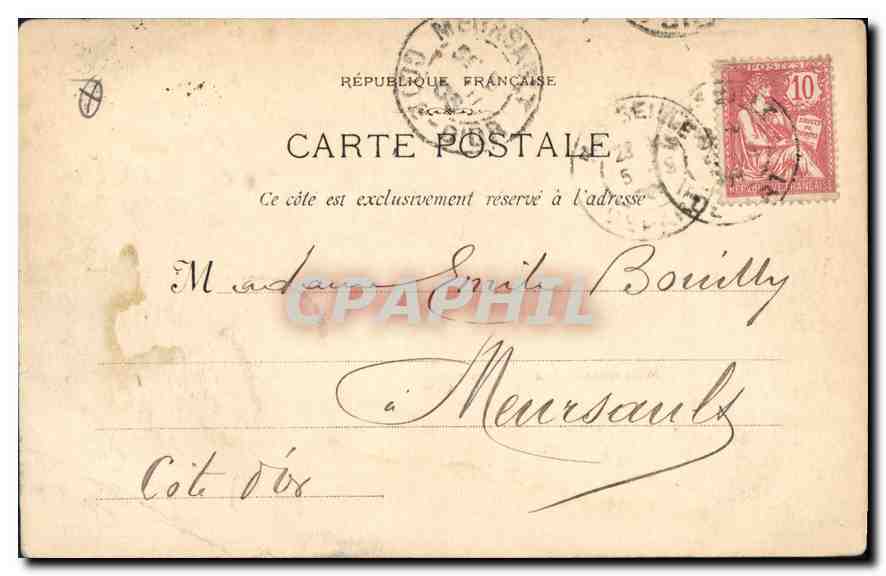 MEURSAULT
CÔTE-D'OR
RÉPUBLIQUE FRANÇAISE
CARTE POSTALE
Ce côté est exclusivement réservé à l'adresse
POSTES
10
REPUBLIQUE FRANÇAISE
23
5
Madame Emile Bouilly
CPAPHIL
à Meursault
Côte d'or